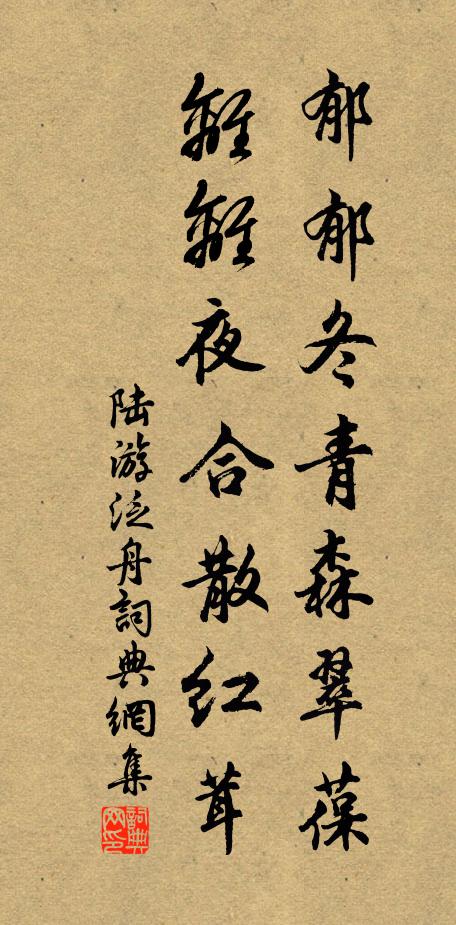 郁郁冬青森翠葆
離離夜合散紅茸
陆游泛舟詞典網集
詞典網印